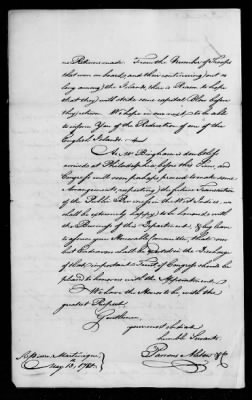 no Return made. From the Number of Troops
that were on board, and their continuing out so
long among the Islands, there is Reason to hope
that they will strike some capital Blow before
they return. We hope in our next to be able
to inform You of the Reduction of some of the
English Islands.
As Mr Bingham is doubtless
arrived at Philadelphia before this Time, and
Congress will even perhaps proceed to make some
Arrangements, respecting the future Transaction
of the Public Business in the West Indies, we
shall be extremely happy to be honored with
the Business of this Department, & beg leave
to assure your Honorable Committee that our
best Endeavors shall be exerted in the Discharge
of that important Trust if Congress should be
pleased to honor us with the Appointment.
We have the Honor to be, with the
greatest Respect
Gentlemen
your most obedient
humble Servants
Parsons Alston & Co
St Pierre Martinique
May 13, 1781.